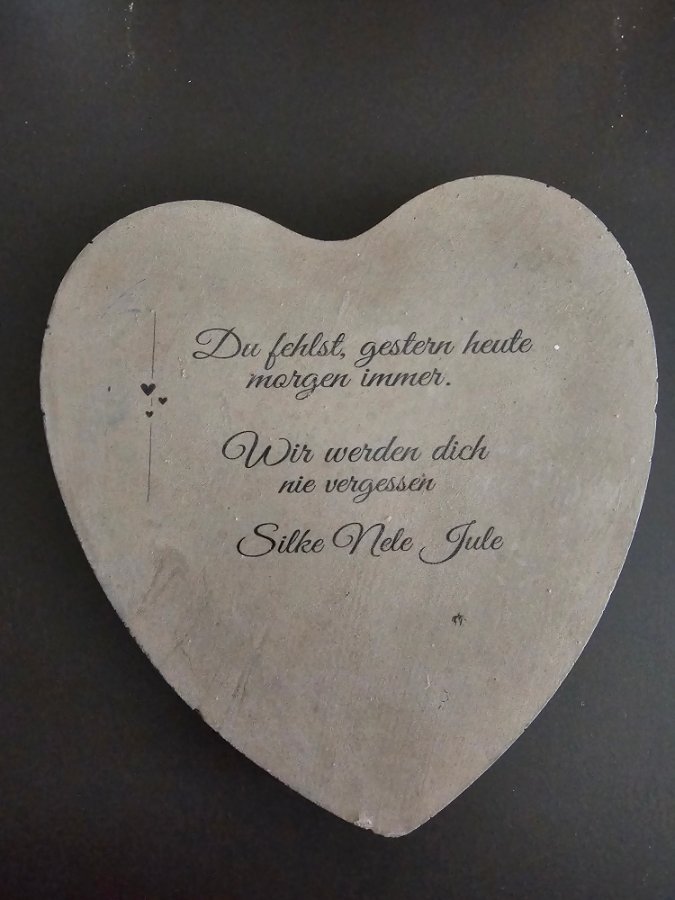 Du fehlst, gestern heute
morgen immer.
Wir werden dich
nie vergessen
Silke Nele Jule